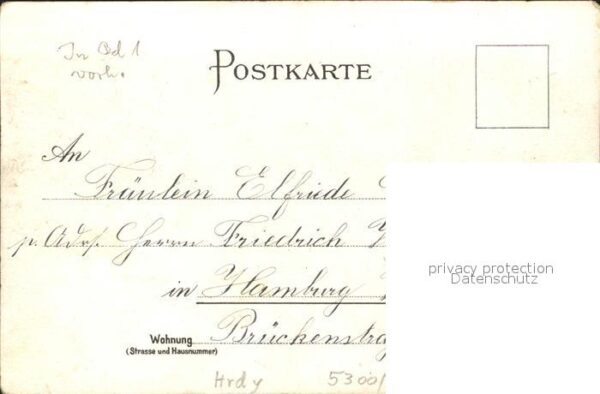 In Od 1
vorh.
POSTKARTE
An
Fräulein Elfriede
p. Adr. Herrn Friedrich
in Hamburg
Wohnung
(Strasse und Hausnummer)
Brückenstra
Hrdy 5300/
privacy protection
Datenschutz